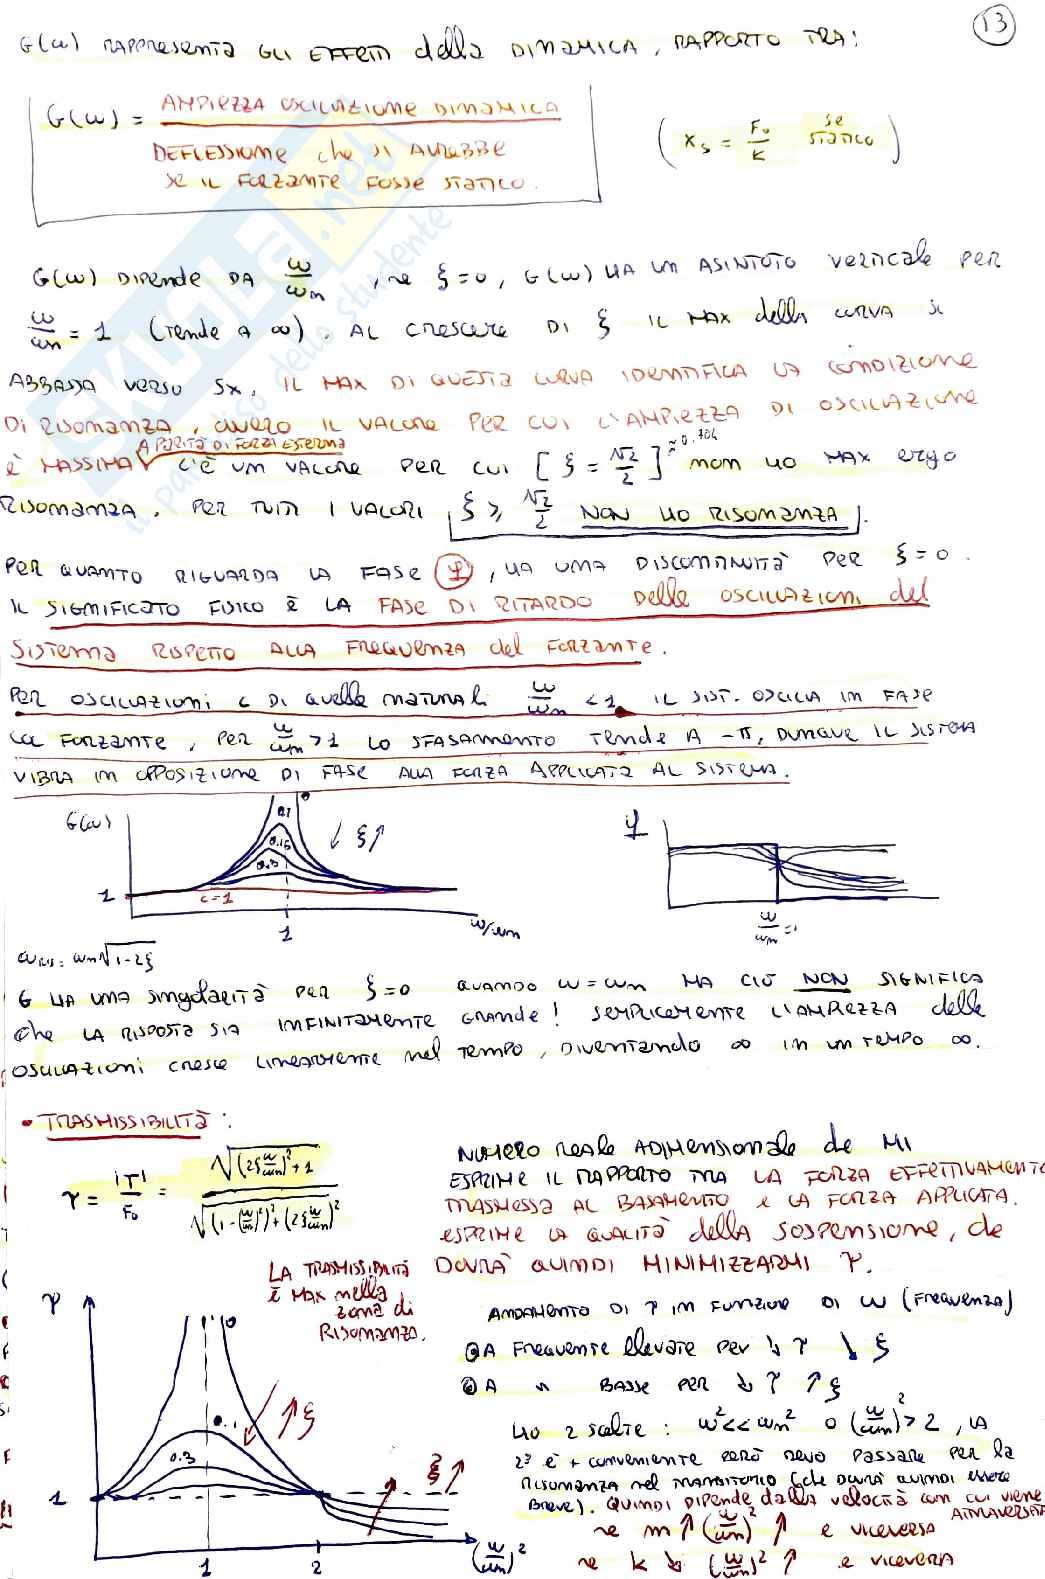 13
G(ω) RAPPRESENTA GLI EFFETTI della DINAMICA, RAPPORTO TRA:
G(ω) = AMPIEZZA OSCILLAZIONE DINAMICA
DEFLESSIONE che SI AVREBBE
SE IL FORZANTE FOSSE STATICO.
( Xs = F0/K se STATICO )
G(ω) DIPENDE DA ω/ωn , se ξ=0, G(ω) HA UN ASINTOTO verticale PER
ω/ωn = 1 (Tende A ∞). AL crescere DI ξ IL MAX della curva si
ABBASSA verso SX. IL MAX DI QUESTA CURVA IDENTIFICA LA CONDIZIONE
DI RISONANZA, OVVERO IL VALORE PER CUI L'AMPIEZZA DI OSCILLAZIONE
A PARITÀ DI FORZA ESTERNA
è MASSIMA C'È UN VALORE PER CUI [ ξ = √2/2 ] ≈ 0.704 non HO MAX ergo
RISONANZA. PER TUTTI I VALORI ξ ≥ √2/2 NON HO RISONANZA.
PER QUANTO RIGUARDA LA FASE φ, HA UNA DISCONTINUITÀ PER ξ=0.
IL SIGNIFICATO FISICO È LA FASE DI RITARDO Delle OSCILLAZIONI del
SISTEMA RISPETTO ALLA FREQUENZA del FORZANTE.
PER OSCILLAZIONI < DI quelle naturali ω/ωn < 1 IL SIST. OSCILLA IN FASE
col FORZANTE, PER ω/ωn > 1 LO SFASAMENTO Tende A -π, DUNQUE IL SISTEMA
VIBRA IN OPPOSIZIONE DI FASE ALLA FORZA APPLICATA AL SISTEMA.
G(ω)
0
0.1
0.15
0.3
↙ ξ↑
1
c=1
1
ω/ωn
φ
ω/ωn =1
ωRIS = ωn√1-2ξ
G HA UNA singolarità PER ξ=0 QUANDO ω=ωn MA CIÒ NON SIGNIFICA
che LA RISPOSTA SIA INFINITAMENTE GRANDE! SEMPLICEMENTE L'AMPIEZZA delle
OSCILLAZIONI cresce LINEARMENTE nel TEMPO, DIVENTANDO ∞ IN un TEMPO ∞.
• TRASMISSIBILITÀ:
τ = |T|/F0 = √(2ξ ω/ωn)²+1 / √(1-(ω/ωn)²)²+(2ξ ω/ωn)²
NUMERO reale ADIMENSIONALE che MI
ESPRIME IL RAPPORTO TRA LA FORZA EFFETTIVAMENTE
TRASMESSA AL BASAMENTO e LA FORZA APPLICATA.
ESPRIME LA QUALITÀ della SOSPENSIONE, che
DOVRÀ QUINDI MINIMIZZARMI τ.
LA TRASMISSIBILITÀ
È MAX nella
zona di
RISONANZA.
τ
0
0.1
↑ξ
0.3
ξ↑
1
1
2
(ω/ωn)²
ANDAMENTO DI τ IN FUNZIONE DI ω (Frequenza)
A Frequenze elevate per ↓ τ ↓ ξ
A " BASSE PER ↓ τ ↑ξ
HO 2 scelte: ω²<<ωn² o (ω/ωn)²>2, LA
2ª è + conveniente però devo Passare per la
RISONANZA nel TRANSITORIO (che DOVRÀ QUINDI essere
Breve). QUINDI DIPENDE dalla velocità con cui viene
ATTRAVERSATA
se m ↑ (ω/ωn)² ↑ e viceversa
se k ↓ (ω/ωn)² ↑ e viceversa
SKUOLA.net
il paradiso dello studente